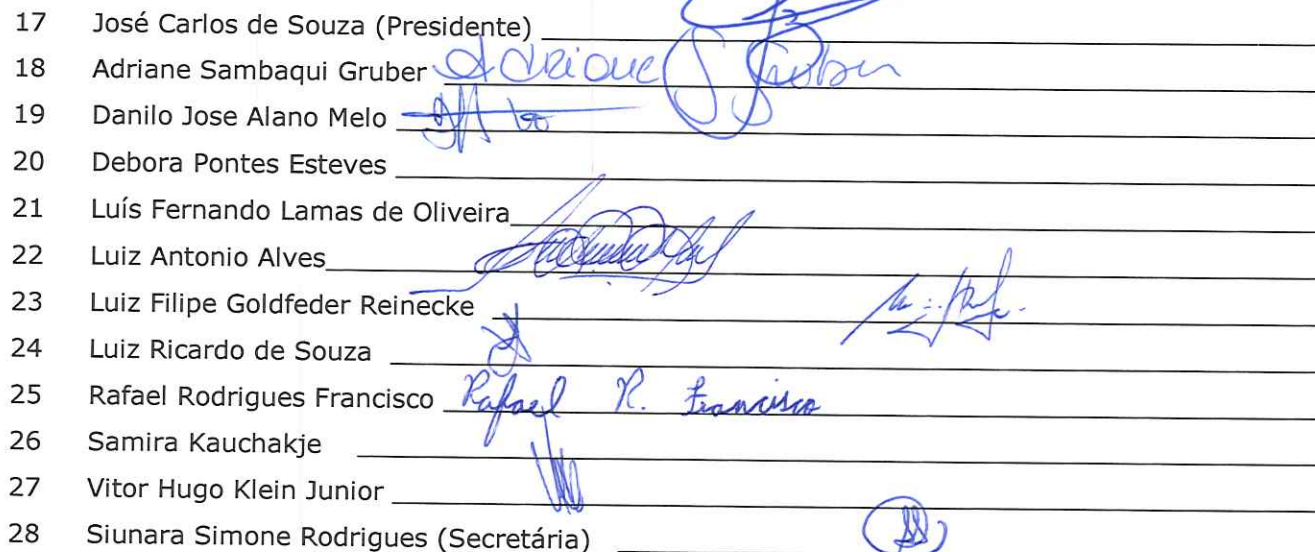 17 José Carlos de Souza (Presidente)
18 Adriane Sambaqui Gruber Adriane S Gruber
19 Danilo Jose Alano Melo
20 Debora Pontes Esteves
21 Luís Fernando Lamas de Oliveira
22 Luiz Antonio Alves
23 Luiz Filipe Goldfeder Reinecke
24 Luiz Ricardo de Souza
25 Rafael Rodrigues Francisco Rafael R. Francisco
26 Samira Kauchakje
27 Vitor Hugo Klein Junior
28 Siunara Simone Rodrigues (Secretária)